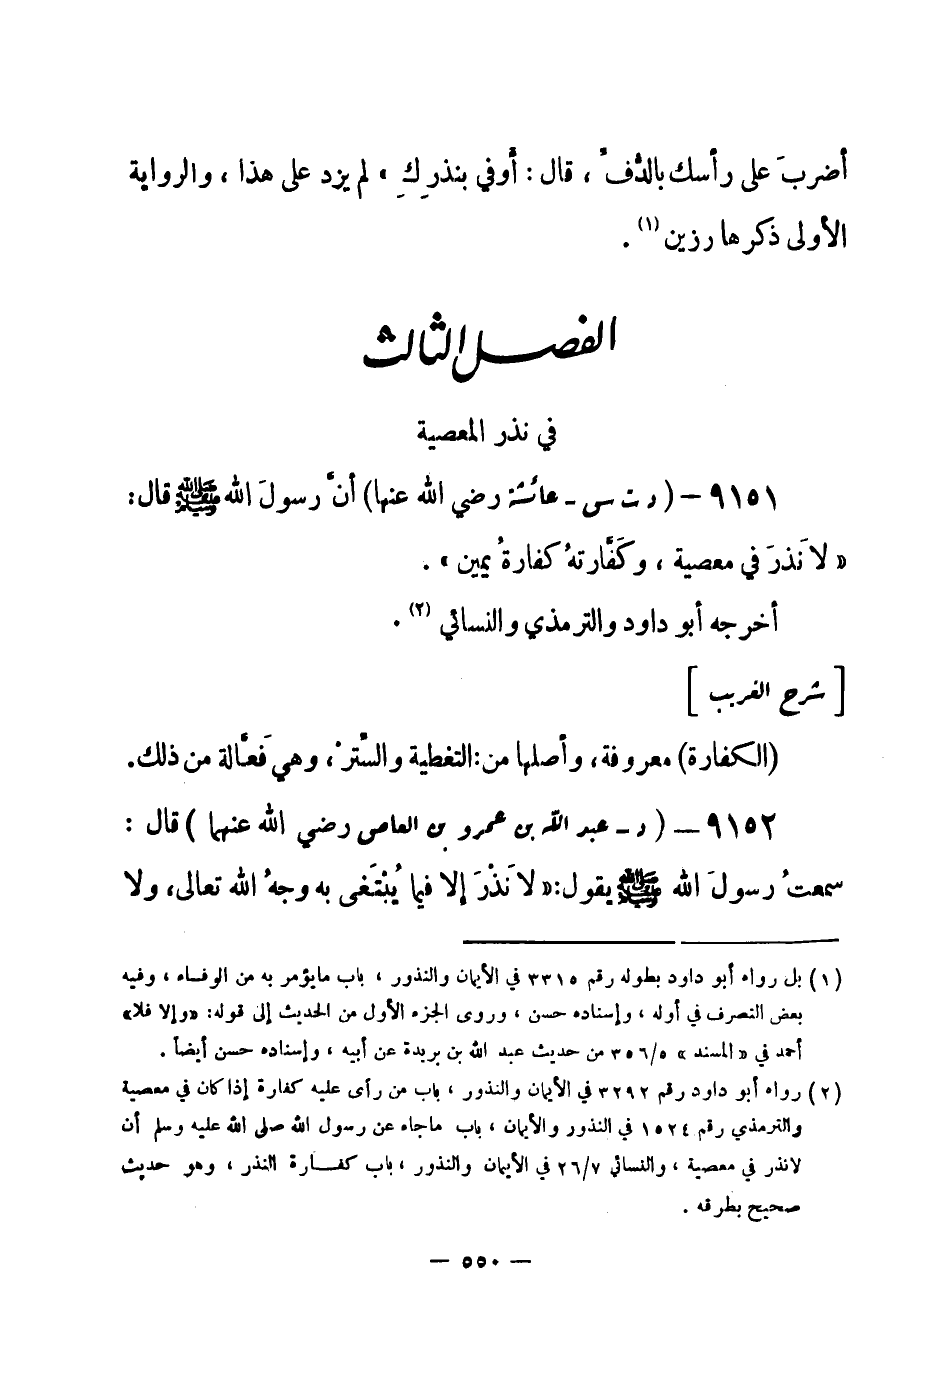 أضربَ على رأسك بالدُّفِّ ، قال : أَوفي بنذرِكِ » لم يزد على هذا ، والرواية
الأولى ذكرها رزين (١) .
الفصل الثالث
في نذر المعصية
٩١٥١ – ( د ت س - عائشة رضي الله عنها) أنَّ رسولَ الله ﷺ قال:
« لا نَذرَ في معصية ، وكَفَّارتهُ كفارةُ يمين » .
أخرجه أبو داود والترمذي والنسائي (٢) .
[ شرح الغريب ]
(الكفارة) معروفة، وأصلها من: التغطية والسَّتْر ، وهي فَعَّالة من ذلك.
٩١٥٢ – ( د - عبد الله بن عمرو بن العاص رضي الله عنهما ) قال :
سمعتُ رسولَ الله ﷺ يقول: « لا نَذْرَ إلا فيما يُبْتَغى به وجهُ الله تعالى، ولا
(١) بل رواه أبو داود بطوله رقم ٣٣١٥ في الأيمان والنذور ، باب مايؤمر به من الوفاء ، وفيه
بعض التصرف في أوله ، وإسناده حسن ، وروى الجزء الأول من الحديث إلى قوله: «وإلا فلا»
أحمد في « المسند » ٣٥٦/٥ من حديث عبد الله بن بريدة عن أبيه ، وإسناده حسن أيضاً .
(٢) رواه أبو داود رقم ٣٢٩٢ في الأيمان والنذور ، باب من رأى عليه كفارة إذا كان في معصية
والترمذي رقم ١٥٢٤ في النذور والأيمان ، باب ماجاء عن رسول الله صلى الله عليه وسلم أن
لانذر في معصية ، والنسائي ٢٦/٧ في الأيمان والنذور ، باب كفارة النذر ، وهو حديث
صحيح بطرقه .
– ٥٥٠ –